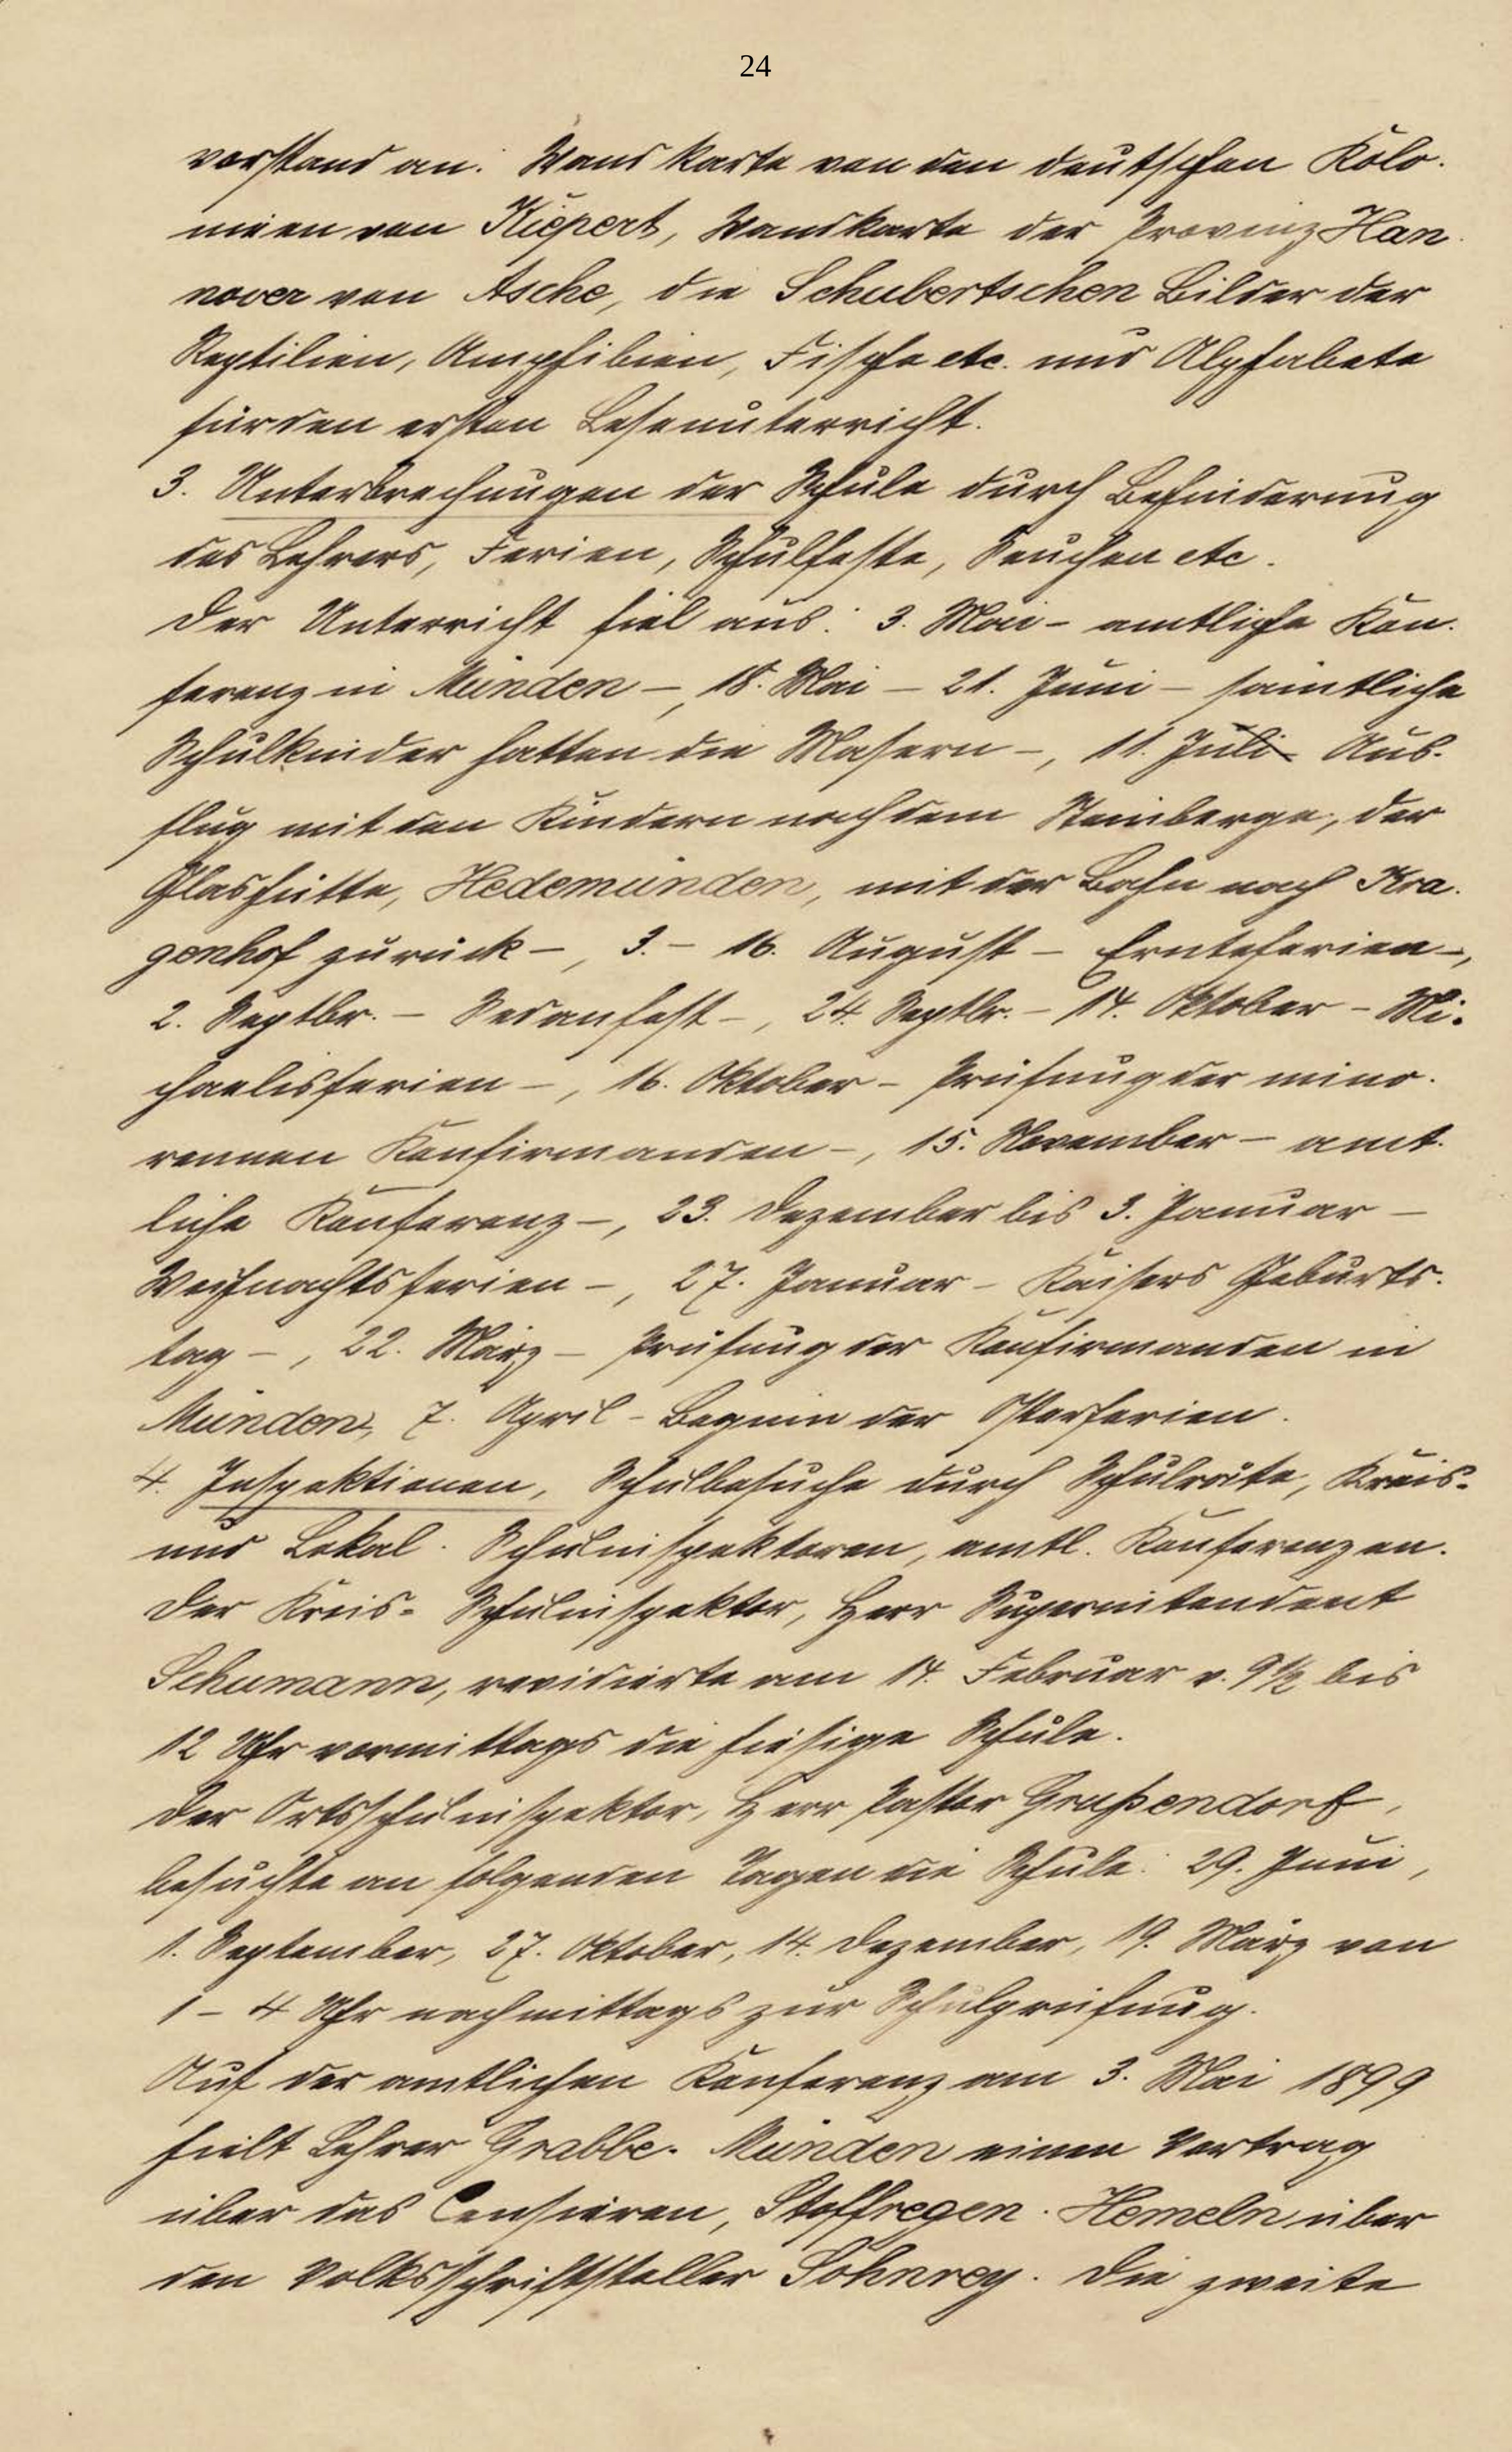 24
vorstand an: Wandkarte von den deutschen Kolo-
nieen von Kiepert, Wandkarte der Provinz Han-
nover von Asche, die Schubertschen Bilder der
Reptilien, Amphibien, Fische etc. und Alphabete
für den ersten Leseunterricht.
3. Unterbrechungen der Schule durch Behinderung
des Lehrers, Ferien, Schulfeste, Seuchen etc.
Der Unterricht fiel aus: 3. Mai - amtliche Kon-
ferenz in Münden -, 18. Mai - 21. Juni - sämtliche
Schulkinder hatten die Masern -, 11. Juli - Aus-
flug mit den Kindern nach dem Steinberge, der
Glashütte, Hedemünden, mit der Bahn nach Kra-
genhof zurück -, 3. - 16. August - Ernteferien -,
2. Septbr. - Sedanfest -, 24. Septbr. - 14. Oktober - Mi-
chaelisferien -, 16. Oktober - Prüfung der mino-
rennen Konfirmanden -, 15. November - amt-
liche Konferenz -, 23. Dezember bis 3. Januar -
Weihnachtsferien -, 27. Januar - Kaisers Geburts-
tag -, 22. März - Prüfung der Konfirmanden in
Münden, 7. April - Beginn der Osterferien.
4. Inspektionen, Schulbesuche durch Schulräte, Kreis-
und Lokal-Schulinspektoren, amtl. Konferenzen.
Der Kreis-Schulinspektor, Herr Superintendent
Schumann, revidierte am 14. Februar v. 9½ bis
12 Uhr vormittags die hiesige Schule.
Der Ortsschulinspektor, Herr Pastor Grußendorf,
besuchte an folgenden Tagen die Schule: 29. Juni,
1. September, 27. Oktober, 14. Dezember, 19. März von
1 - 4 Uhr nachmittags zur Schulprüfung.
Auf der amtlichen Konferenz am 3. Mai 1899
hielt Lehrer Grabbe-Münden einen Vortrag
über das Censieren, Stoffregen-Hemeln über
den Volksschriftsteller Sohnrey. Die zweite